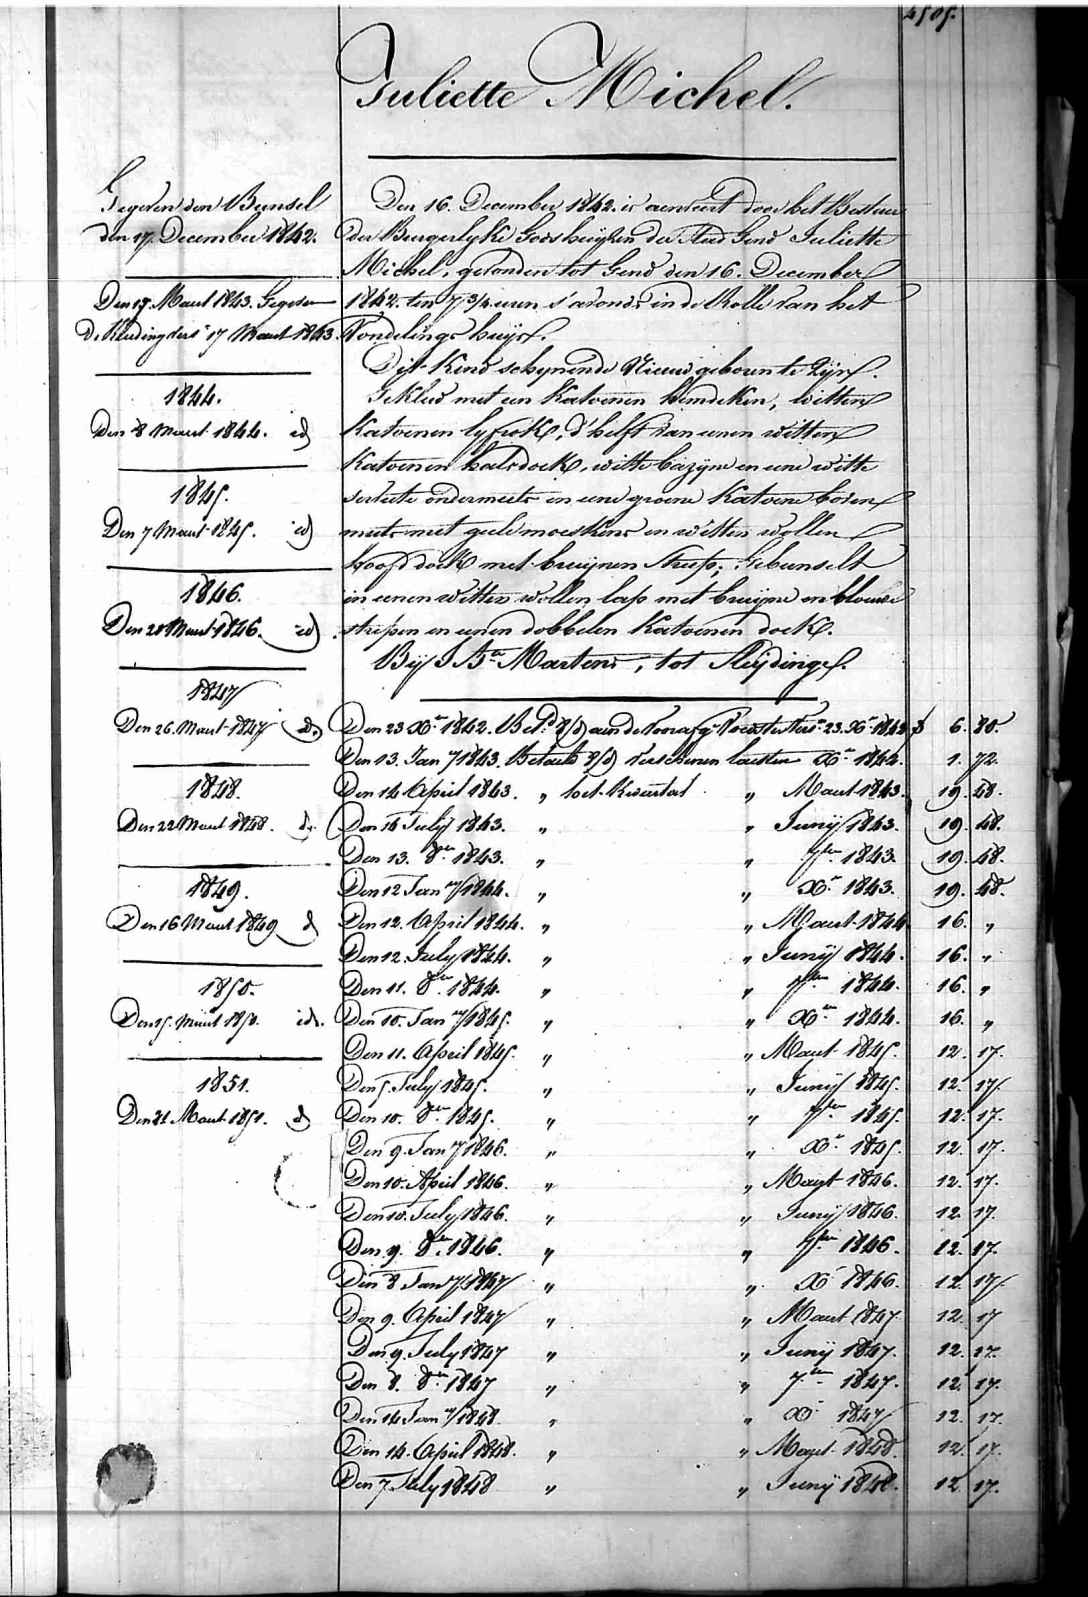 4505.
Juliette Michel.
Gegeven den Bunsel
den 17. December 1842.
Den 17. Maert 1843. Gegeven
De Kleedingders 17 Maert 1843.
1844.
Den 8 Maert 1844. id
1845.
Den 7 Maert 1845. id
1846.
Den 28 Maert 1846. id
1847
Den 26. Maert 1847 id.
1848.
Den 22 Maert 1848. id.
1849.
Den 16 Maert 1849 d
1850.
Den 15. Maert 1850. id.
1851.
Den 21. Maert 1851. d
Den 16. December 1842. is aenveert door het Bestuer
der Burgerlyke Godshuyzen der Stad Gend Juliette
Michel, gevonden tot Gend den 16. December
1842. ten 7 3/4 uren s'avonds in de Rolle van het
Vondelings huys.
Dit Kind schynende Nieuwgeboren te Zyn.
Gekleed met een Katoenen hemdeken, witten
Katoenen lyfrok, d'helft van eenen witten
Katoenen halsdoek, witte bazyne en eene witte
serviette ondermuts en eene groene Katoene boven
muts met gele moeskens en witten wollen
hoofddoek met bruynen streep; Gebunselt
in eenen witten wollen lap met bruyne en blauwe
strepen en eenen dobbelen Katoenen doek.
By J. Bte Martens, tot Sleydinge.
Den 23 Xer 1842. Betd aen de Voorafge Voedster 23. Xer 1842 6. 80.
Den 13. Jany 1843. Betaelt verschenen laetsten Xer 1842. 1. 72.
Den 14 April 1843. " het Kwartael " Maert 1843. 19. 48.
Den 14 July 1843. " " Juny 1843. 19. 48.
Den 13. 8er 1843. " " 7ber 1843. 19. 48.
Den 12 Jany 1844. " " Xer 1843. 19. 48.
Den 12. April 1844. " " Maert 1844 16. "
Den 12. July 1844. " " Juny 1844. 16. "
Den 11. 8er 1844. " " 7ber 1844. 16. "
Den 10. Jany 1845. " " Xer 1844. 16. "
Den 11. April 1845. " " Maert 1845. 12. 17.
Den 5. July 1845. " " Juny 1845. 12. 17
Den 10. 8er 1845. " " 7ber 1845. 12. 17.
Den 9. Jany 1846. " " Xr 1845. 12. 17.
Den 10. April 1846. " " Maert 1846. 12. 17.
Den 10. July 1846. " " Juny 1846. 12. 17.
Den 9. 8er 1846. " " 7ber 1846. 12. 17.
Den 8 Jany 1847 " " Xr 1846. 12. 17
Den 9. April 1847 " " Maert 1847 12. 17
Den 9. July 1847 " " Juny 1847. 12. 17.
Den 8. 8er 1847 " " 7ber 1847. 12. 17.
Den 14 Jany 1848 " " Xr 1847 12. 17.
Den 14. April 1848. " " Maert 1848 12. 17.
Den 7 July 1848 " " Juny 1848. 12 17.